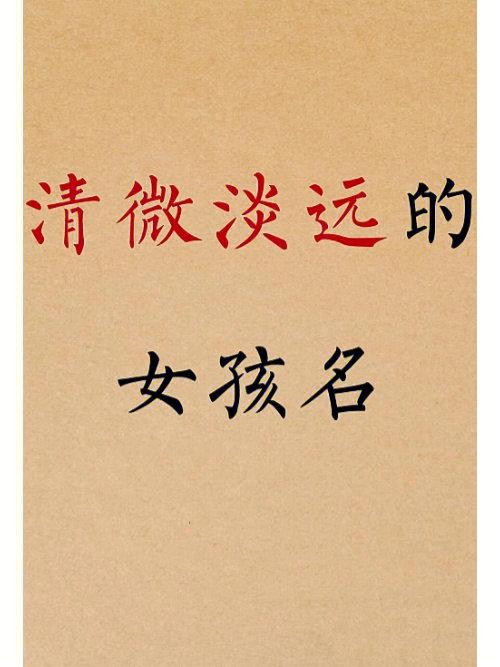 清微淡远的
女孩名